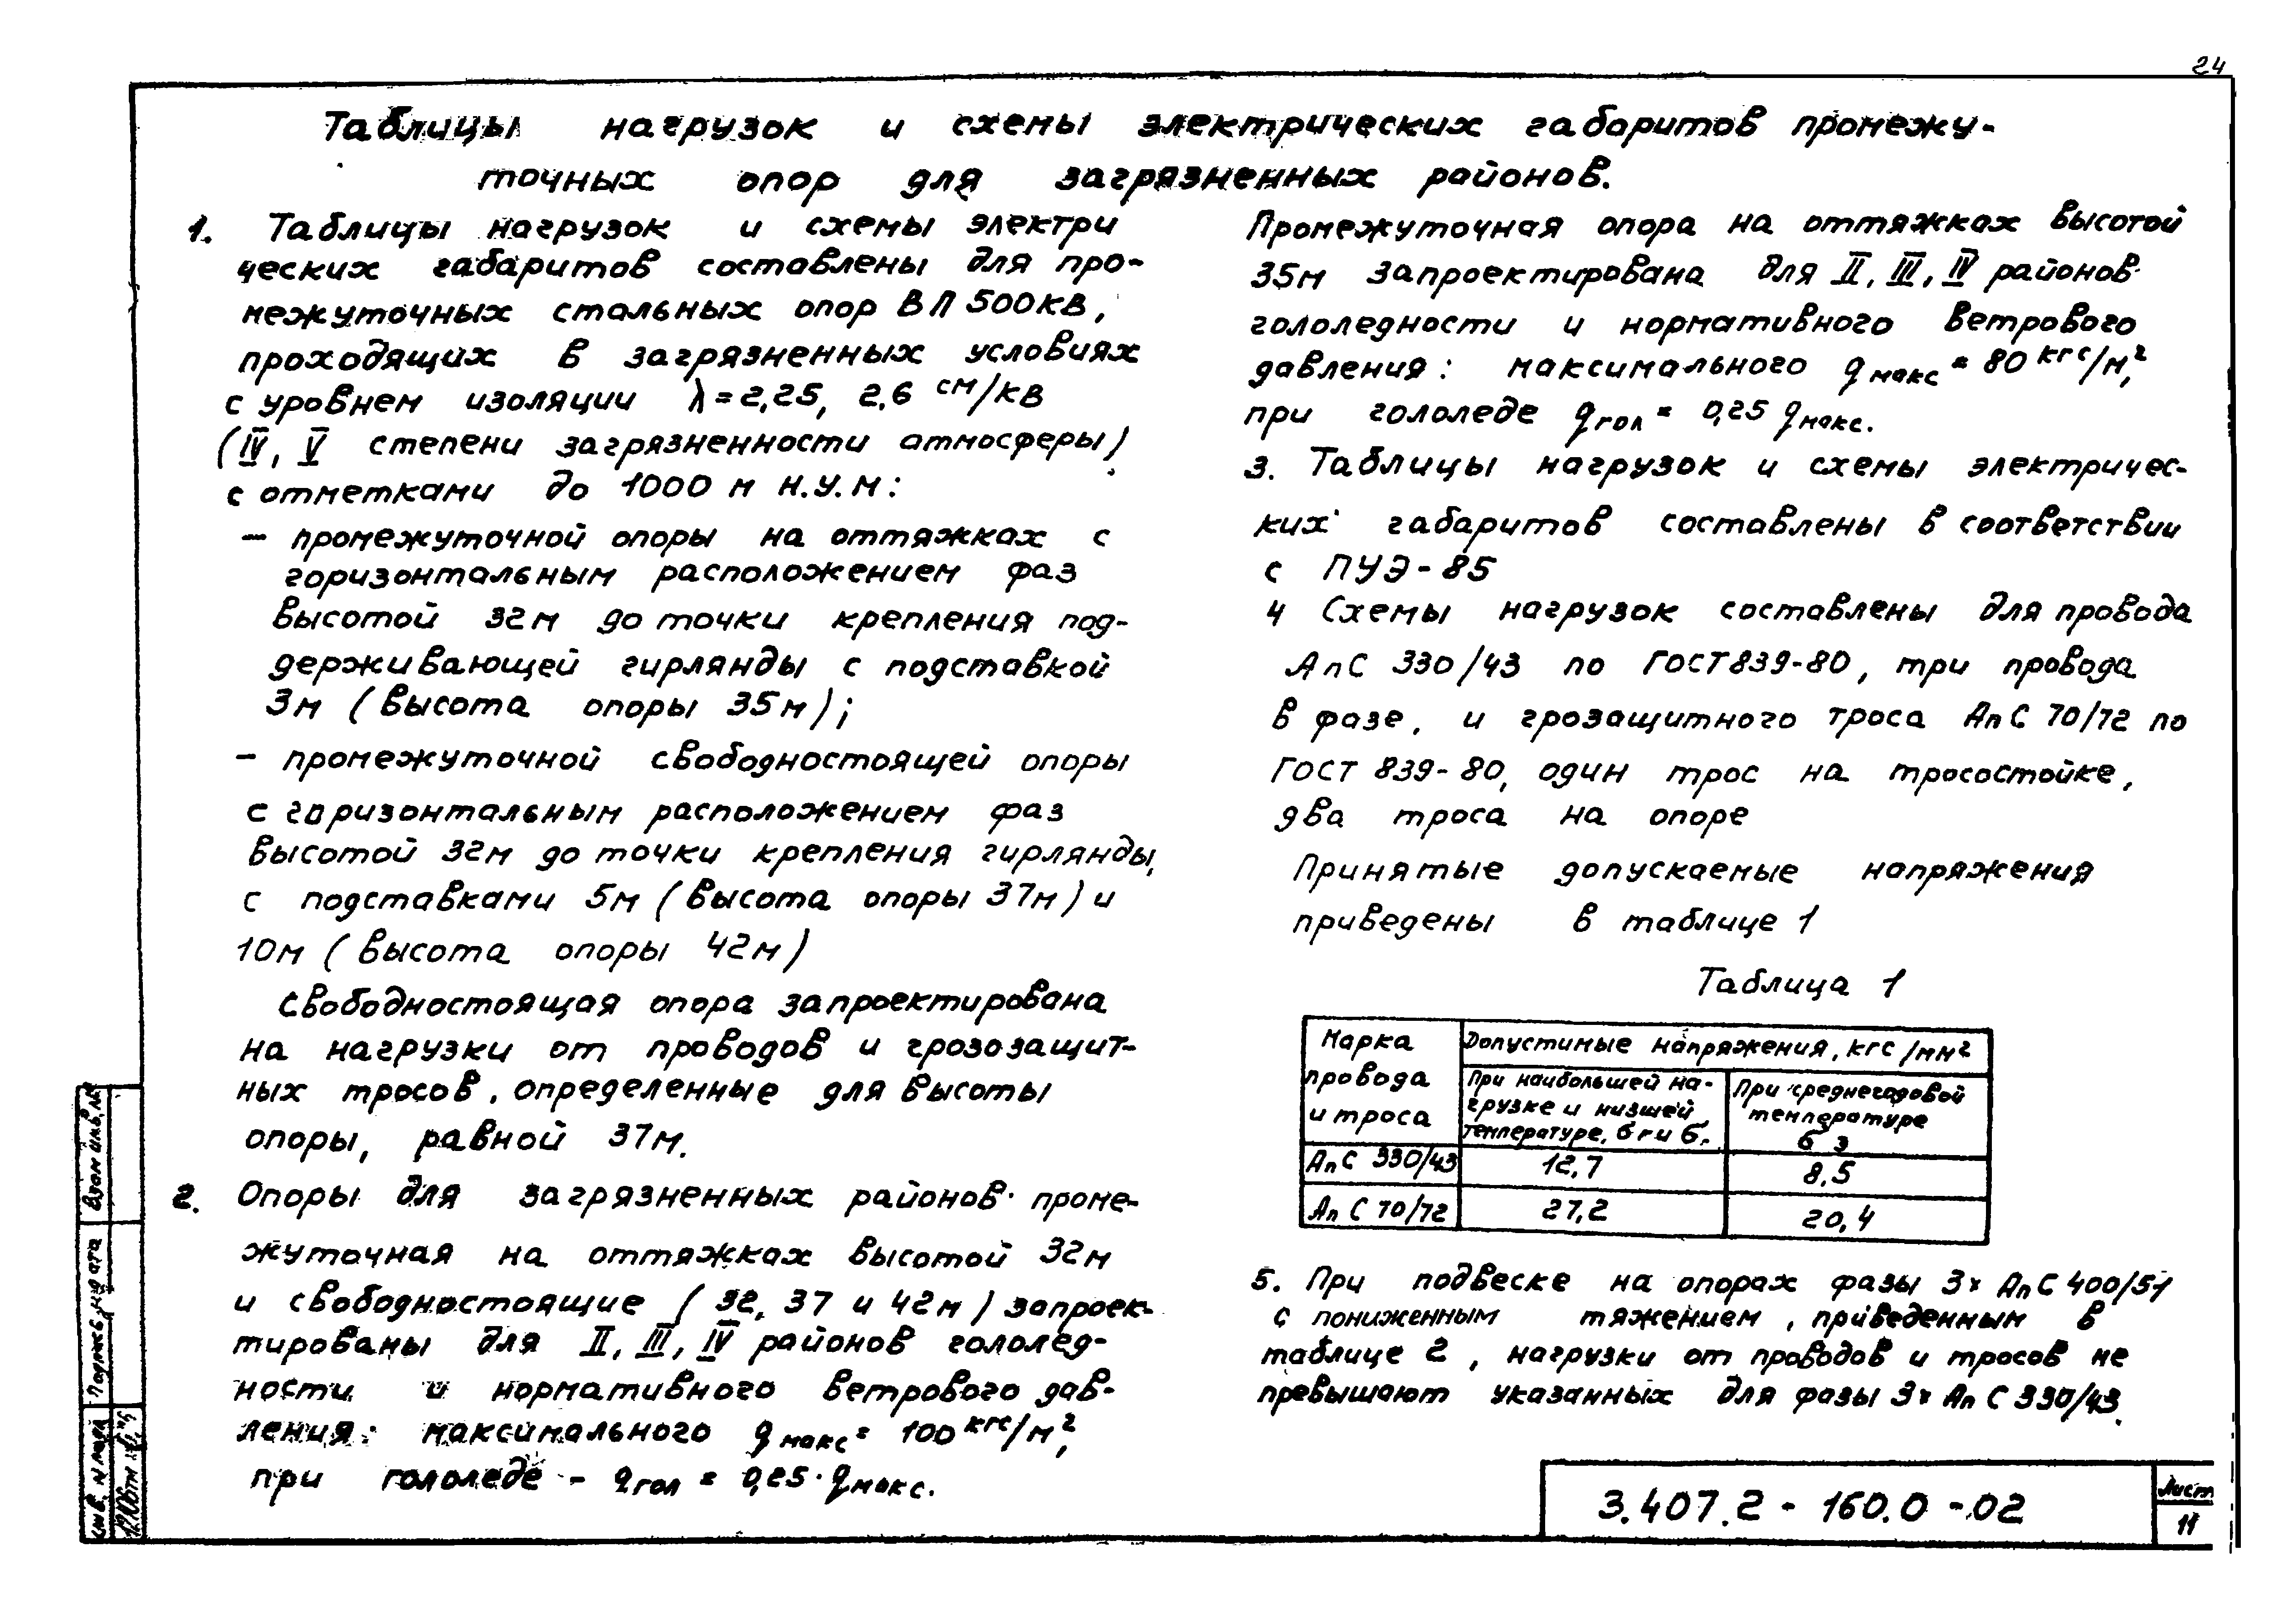 24
Таблицы нагрузок и схемы электрических габаритов промежу-
точных опор для загрязненных районов.
1. Таблицы нагрузок и схемы электри
ческих габаритов составлены для про-
межуточных стальных опор ВЛ 500кВ,
проходящих в загрязненных условиях
с уровнем изоляции λ = 2,25, 2,6 см/кВ
(IV, V степени загрязненности атмосферы)
с отметками до 1000 м н.у.м:
- промежуточной опоры на оттяжках с
горизонтальным расположением фаз
высотой 32м до точки крепления под-
держивающей гирлянды с подставкой
3м (высота опоры 35м);
- промежуточной свободностоящей опоры
с горизонтальным расположением фаз
высотой 32м до точки крепления гирлянды,
с подставками 5м (высота опоры 37м) и
10м (высота опоры 42м)
Свободностоящая опора запроектирована
на нагрузки от проводов и грозозащит-
ных тросов, определенные для высоты
опоры, равной 37м.
2. Опоры для загрязненных районов проме-
жуточная на оттяжках высотой 32м
и свободностоящие (32, 37 и 42м) запроек-
тированы для II, III, IV районов гололед-
ности и нормативного ветрового дав-
ления: максимального q макс = 100 кгс/м²,
при гололеде - q гол = 0,25·q макс.
Промежуточная опора на оттяжках высотой
35м запроектирована для II, III, IV районов
гололедности и нормативного ветрового
давления: максимального q макс = 80 кгс/м²,
при гололеде q гол = 0,25 q макс.
3. Таблицы нагрузок и схемы электричес-
ких габаритов составлены в соответствии
с ПУЭ-85
4 Схемы нагрузок составлены для провода
АпС 330/43 по ГОСТ839-80, три провода
в фазе, и грозащитного троса АпС 70/72 по
ГОСТ 839-80, один трос на тросостойке,
два троса на опоре
Принятые допускаемые напряжения
приведены в таблице 1
Таблица 1
Марка провода и троса
Допустимые напряжения, кгс/мм²
При наибольшей на-
грузке и низшей
температуре, бг и б-
При среднегодовой
температуре
б э
АпС 330/43 12,7 8,5
АпС 70/72 27,2 20,4
5. При подвеске на опорах фазы 3х АпС 400/51
с пониженным тяжением, приведенным в
таблице 2, нагрузки от проводов и тросов не
превышают указанных для фазы 3х АпС 330/43.
3.407.2 - 160.0 - 02
Лист
11
Взам инв. №
Подпись и дата
Инв. N подл